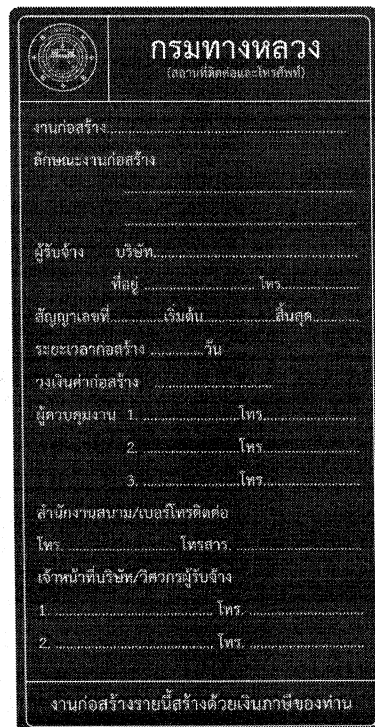 กรมทางหลวง
(สถานที่ติดต่อและโทรศัพท์)
งานก่อสร้าง..............................
ลักษณะงานก่อสร้าง
..............................
..............................
ผู้รับจ้าง บริษัท..............................
ที่อยู่ .................... โทร...............
สัญญาเลขที่...............เริ่มต้น...............สิ้นสุด...........
ระยะเวลาก่อสร้าง ............วัน
วงเงินค่าก่อสร้าง ....................
ผู้ควบคุมงาน 1. ....................โทร...............
2. ....................โทร...............
3. ....................โทร...............
สำนักงานสนาม/เบอร์โทรติดต่อ
โทร. .................... โทรสาร. ....................
เจ้าหน้าที่บริษัท/วิศวกรผู้รับจ้าง
1. .............................. โทร. ....................
2. .............................. โทร. ....................
งานก่อสร้างรายนี้สร้างด้วยเงินภาษีของท่าน